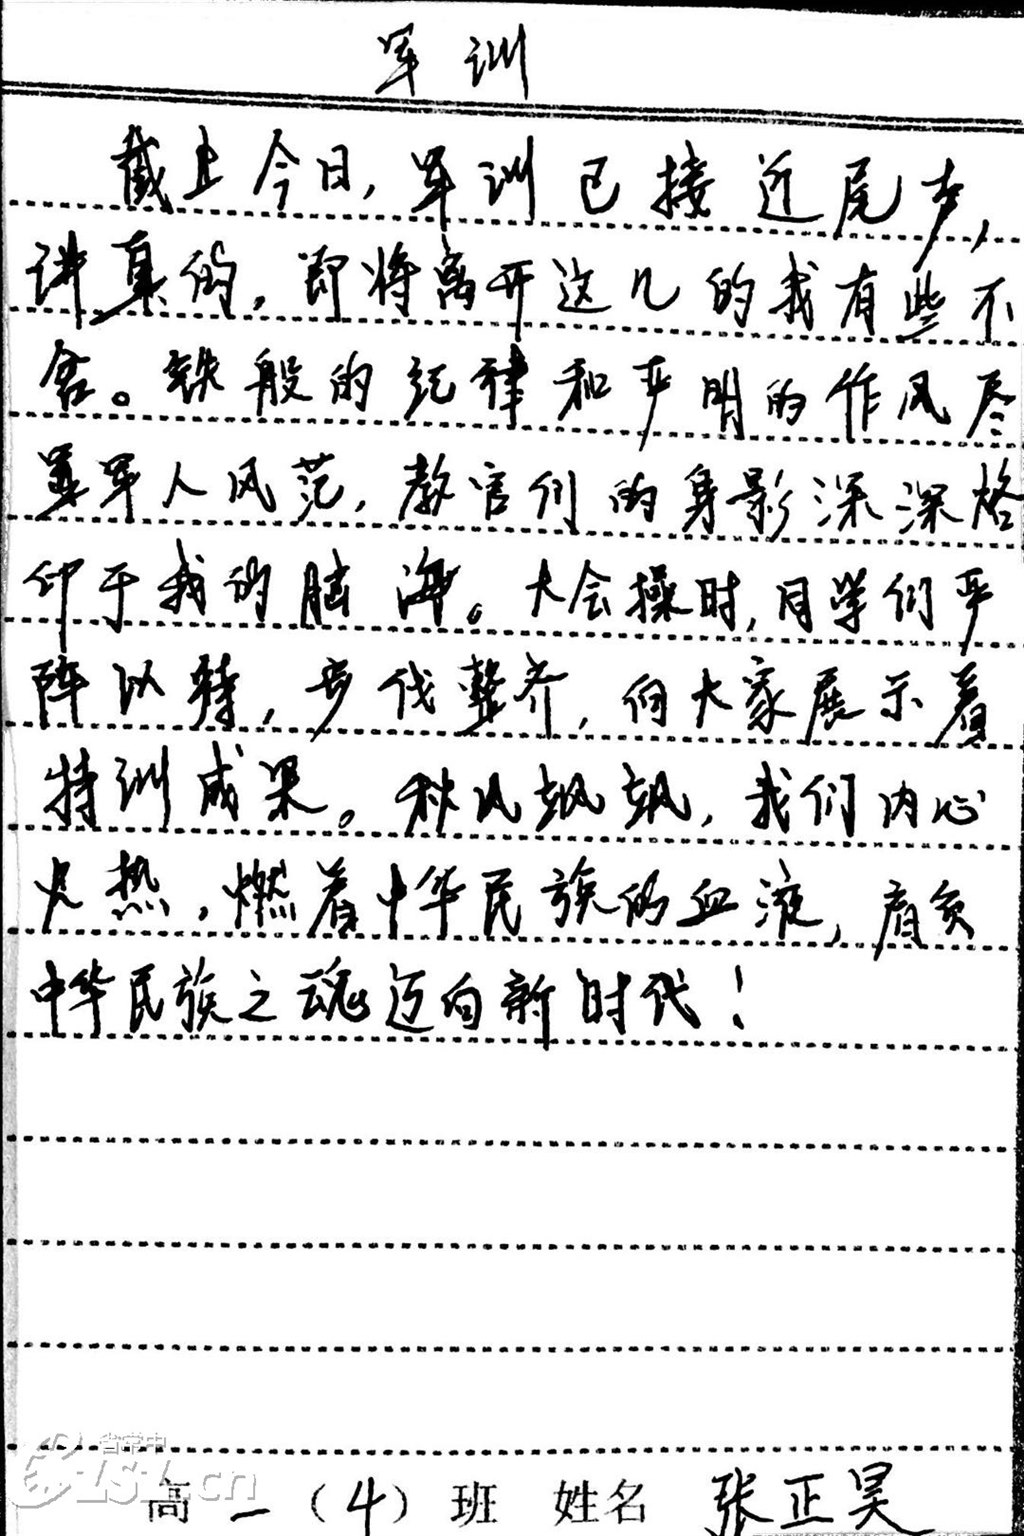 军训
截止今日，军训已接近尾声，
讲真的，即将离开这儿的我有些不
舍。铁般的纪律和严明的作风尽
显军人风范，教官们的身影深深烙
印于我的脑海。大会操时，同学们严
阵以待，步伐整齐，向大家展示着
特训成果。秋风飒飒，我们内心
火热，燃着中华民族的血液，肩负
中华民族之魂迈向新时代！
省常中
CSZ.cn
高一（4）班 姓名 张正昊